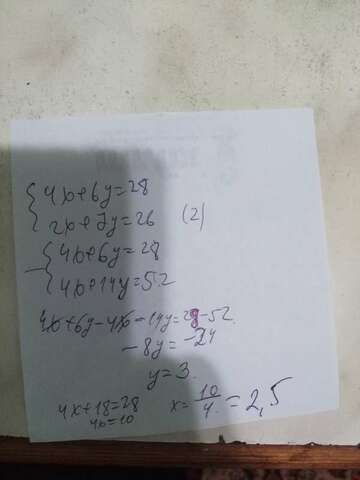 4x+6y=28
2x+7y=26 (2)
4x+6y=28
4x+14y=52
4x+6y-4x-14y=28-52
-8y=-24
y=3.
4x+18=28
4x=10
x=10/4=2,5